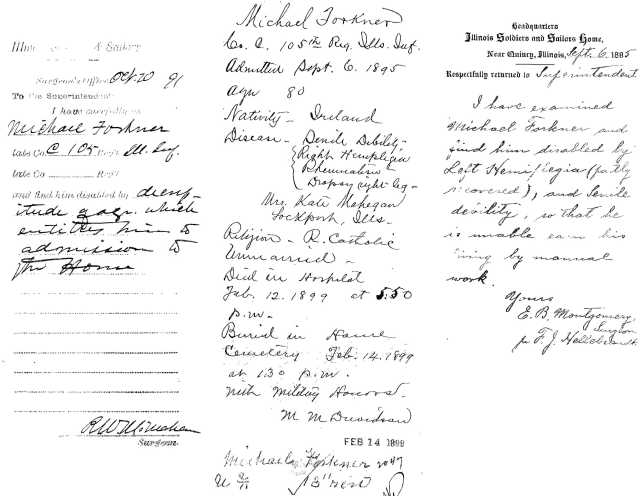 Surgeon's Office, Oct 20 91
To the Superintendent:
I have carefully ex
Michael Forkner
late Co. C 105 Reg't Ill. Inf.
late Co. Reg't
and find him disabled by decrep-
itude & age. which
entitles him to
admission to
the Home
Surgeon.
Michael Forkner
Co. C. 105th Reg. Ills. Inf.
Admitted Sept. 6. 1895
age 80
Nativity - Ireland
Disease - Senile Debility -
Right Hemiplegia
Rheumatism
Dropsy right leg -
Mrs. Kate Mehegan
Lockport, Ills.
Religion - R. Catholic
Unmarried -
Died in Hospital
Feb. 12. 1899 at 5:50
p.m.
Buried in Home
Cemetery Feb. 14. 1899
at 1.30 p.m.
with Military Honors.
M M Davidson
FEB 14 1899
Michael Forkner
Headquarters
Illinois Soldiers and Sailors Home,
Near Quincy, Illinois, Sept. 6, 1895
Respectfully returned to Superintendent
I have examined
Michael Forkner and
find him disabled by
Left Hemiplegia (partly
recovered), and Senile
debility, so that he
is unable earn his
living by manual
work.
Yours
E. B. Montgomery
Surgeon
per F. J.